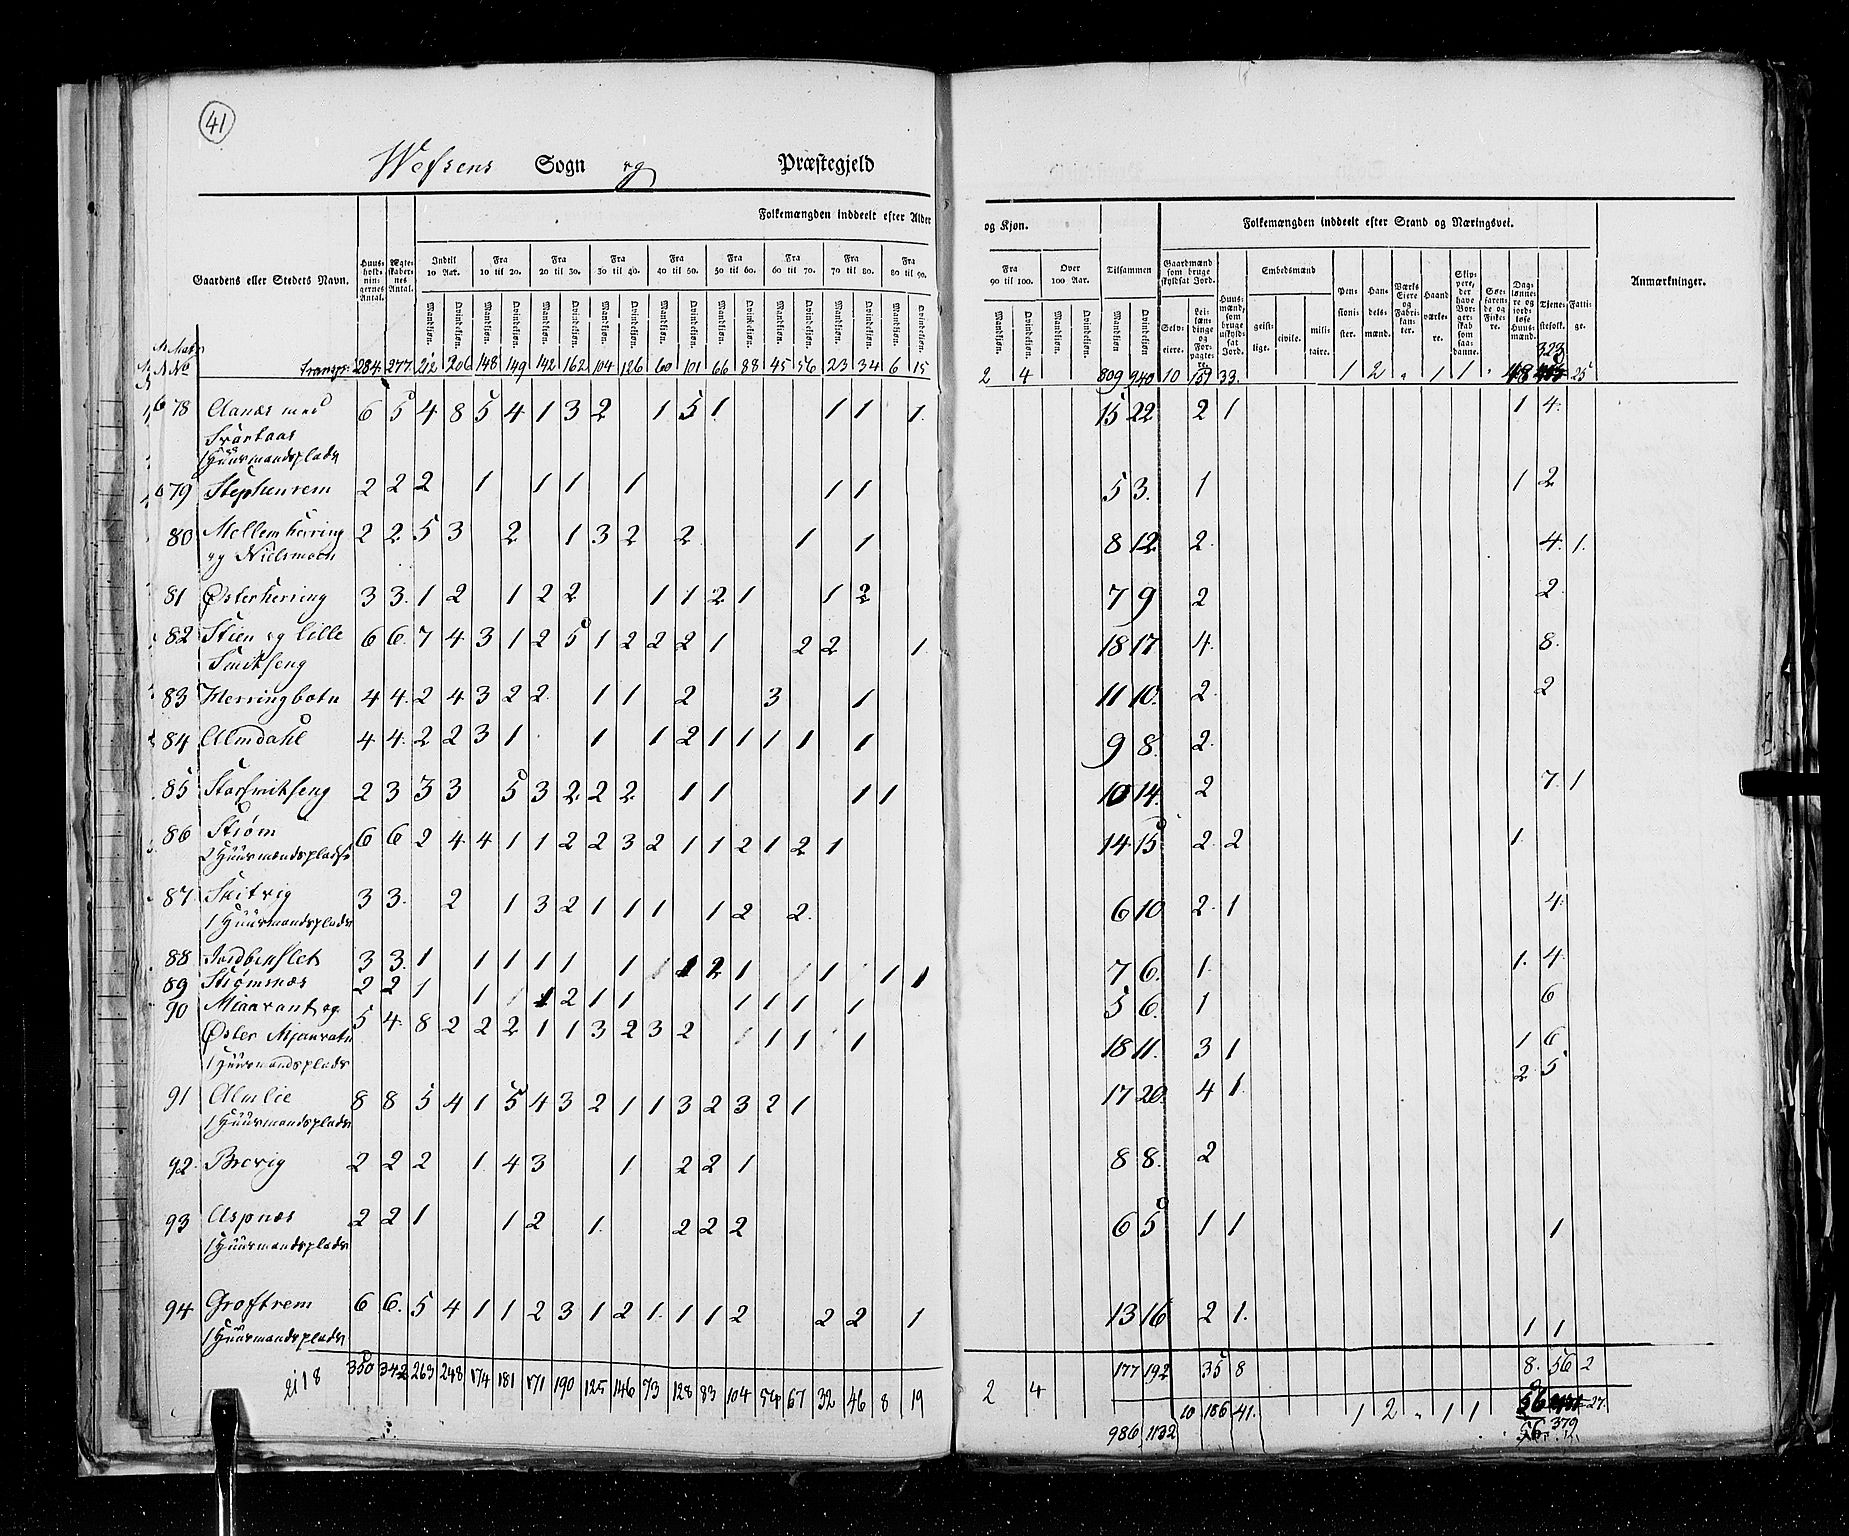 41
Wefsens Sogn og Præstegjeld
Gaardens eller Stedets Navn.
Huusholdningernes Antal.
Ægteskabernes Antal.
Folkemængden inddeelt efter Alder og Kjøn.
Indtil 10 Aar.
Fra 10 til 20.
Fra 20 til 30.
Fra 30 til 40.
Fra 40 til 50.
Fra 50 til 60.
Fra 60 til 70.
Fra 70 til 80.
Fra 80 til 90.
Fra 90 til 100.
Over 100 Aar.
Tilsammen
Mandkjøn. Qvindekjøn.
Folkemængden inddeelt efter Stand og Næringsvei.
Gaardmænd som bruge skyldsat Jord.
Selveiere.
Leilændinge og Forpagtere.
Huusmænd, som bruge uskyldsat Jord.
Embedsmænd
geistlige. civile. militaire.
Pensionister.
Handelsmænd.
Værks Eiere og Fabrikanter.
Haandværkere.
Skippere, der have Borgerskab som saadanne.
Søefarende og Fiskere.
Daglønnere og jordløse Huusmænd.
Tjenestefolk.
Fattige.
Anmærkninger.
Mat No
323
Transp: 284 277 212 206 148 149 142 162 104 126 60 101 66 88 45 56 23 34 6 15 2 4 809 940 10 151 33. 1 2 " 1 1 " 48 25
78 Aanæs med 6 5 4 8 5 4 1 3 2 1 5 1 1 1 1. 15 22 2 1 1 4.
Svartaas
1 Huusmandsplads
79 Stephensrem 2 2 2 1 1 1 1 1 1 5 3. 1 1 2
80 Mellem Herring 2 2 5 3 2 1 3 2 2 1 1 8 12 2. 4. 1.
og Nielsmoen
81 Østerherring 3 3. 1 2 1 2 2 1 1 2 1 1 2 7 9 2 2.
82 Stien og Lille 6 6. 7 4 3 1 2 5 1 2 2 2 1 2 2 1. 18 17 4. 8.
Smitseng
83 Herringbotn 4 4. 2 4 3 2 2. 1 1 2 3 1 11 10. 2. 2
84 Almdahl 4 4. 2 2 3 1 1 1 2 1 1 1 1 1 9 8. 2.
85 Storsmitseng 2 3 3 3 5 3 2 2 2 1 1 1 1 10 14. 2 7. 1
86 Strøm 6 6 2 4 4 1 1 2 2 3 2 1 1 2 1 2 1 14 15 2. 2 1.
2 Huusmandspladse
87 Suitvig 3 3. 2 1 3 2 1 1 1 1 2 2. 6 10 2. 1 4.
1 Huusmandsplads
88 3 3. 1 1 1 1 1 1 1 2 1 1 1 1 7 6. 1. 1. 4.
89 Strømnæs 2 2 1 1 1 2 1 1 1 1 1 1 5 6. 1 6
90 Miaavant og 5 4. 8 2 2 2 1 1 3 2 3 2 1 1 1 18 11. 3 1 1 6
Øster Mjaavatn
1 Huusmandsplads
91 Almlie 8 8 5 4 1 5 4 3 2 1 1 3 2 3 2 1 17 20. 4 1. 2 5
1 Huusmandsplads
92 Brevig 2 2 2 1. 4 3 1 2 2 1 8 8. 2
93 Aspnæs 2 2 1 1 2 1. 2 2 2 6 5 1 1 1
1 Huusmandsplads
94 Groftrem 6 6. 5 4 1 1 2 3 1 2 1. 1 1 2 2 2 1 13 16 2 1. 1 1
1 Huusmandsplads
177 192 35 8 8. 56 2
2118 350 342 263 248 174 181 171 190 125 146 73 128 83 104 54 67 32 46 8 19 2 4 10 186 41. 1 2 " 1 1 56 27.
986 1132 56 379